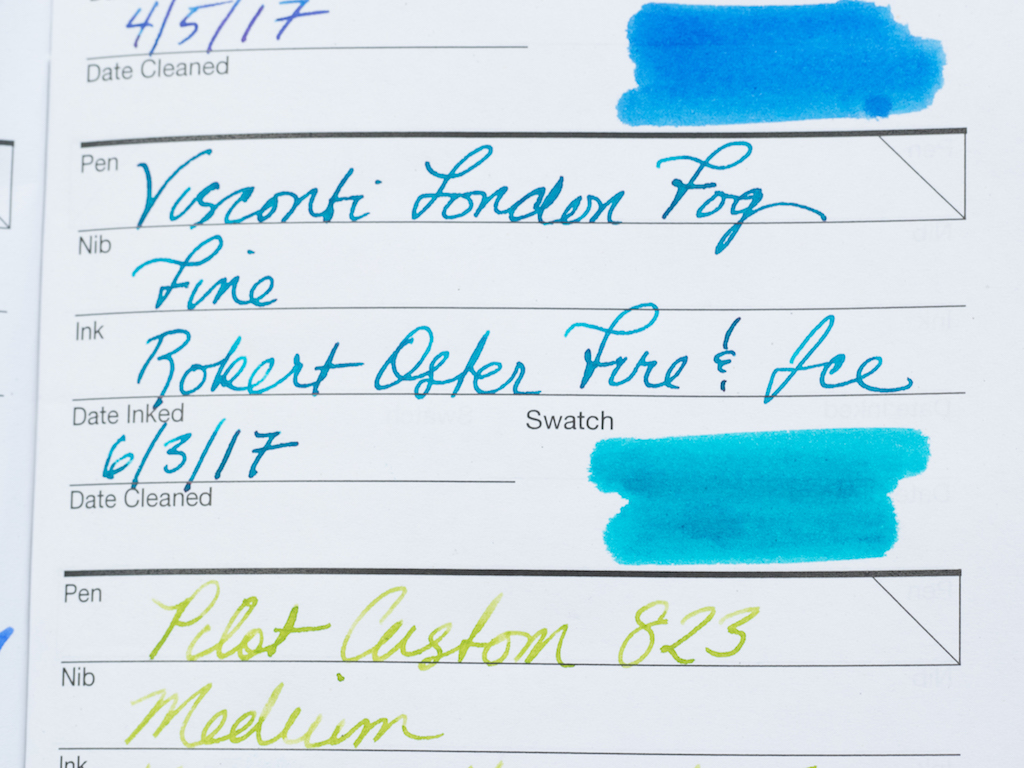 4/5/17
Date Cleaned
Pen Visconti London Fog
Nib Fine
Ink Robert Oster Fire & Ice
Date Inked Swatch
6/3/17
Date Cleaned
Pen Pilot Custom 823
Nib Medium
Ink